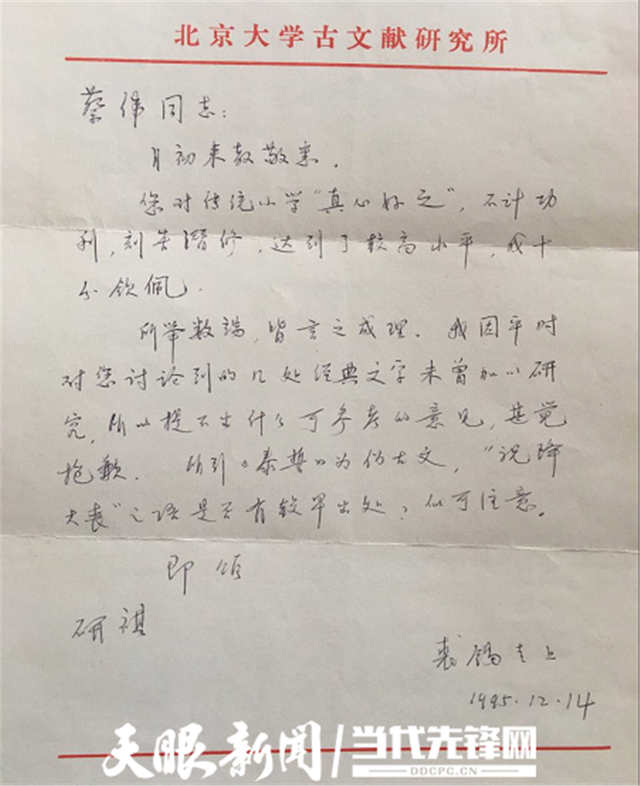 北京大学古文献研究所
蔡伟同志：
月初来教敬悉．
您对传统小学“真心好之”，不计功
利，刻苦潜修，达到了较高水平，我十
分钦佩．
所举数端，皆言之成理．我因平时
对您讨论到的几处经典文字未曾加以研
究，所以提不出什么可参考的意见，甚觉
抱歉．所引《泰誓》为伪古文，“祝降
大丧”之语是否有较早出处，似可注意。
即颂
研祺
裘锡圭上
1995.12.14
天眼新闻/当代先锋网
DDCPC.CN